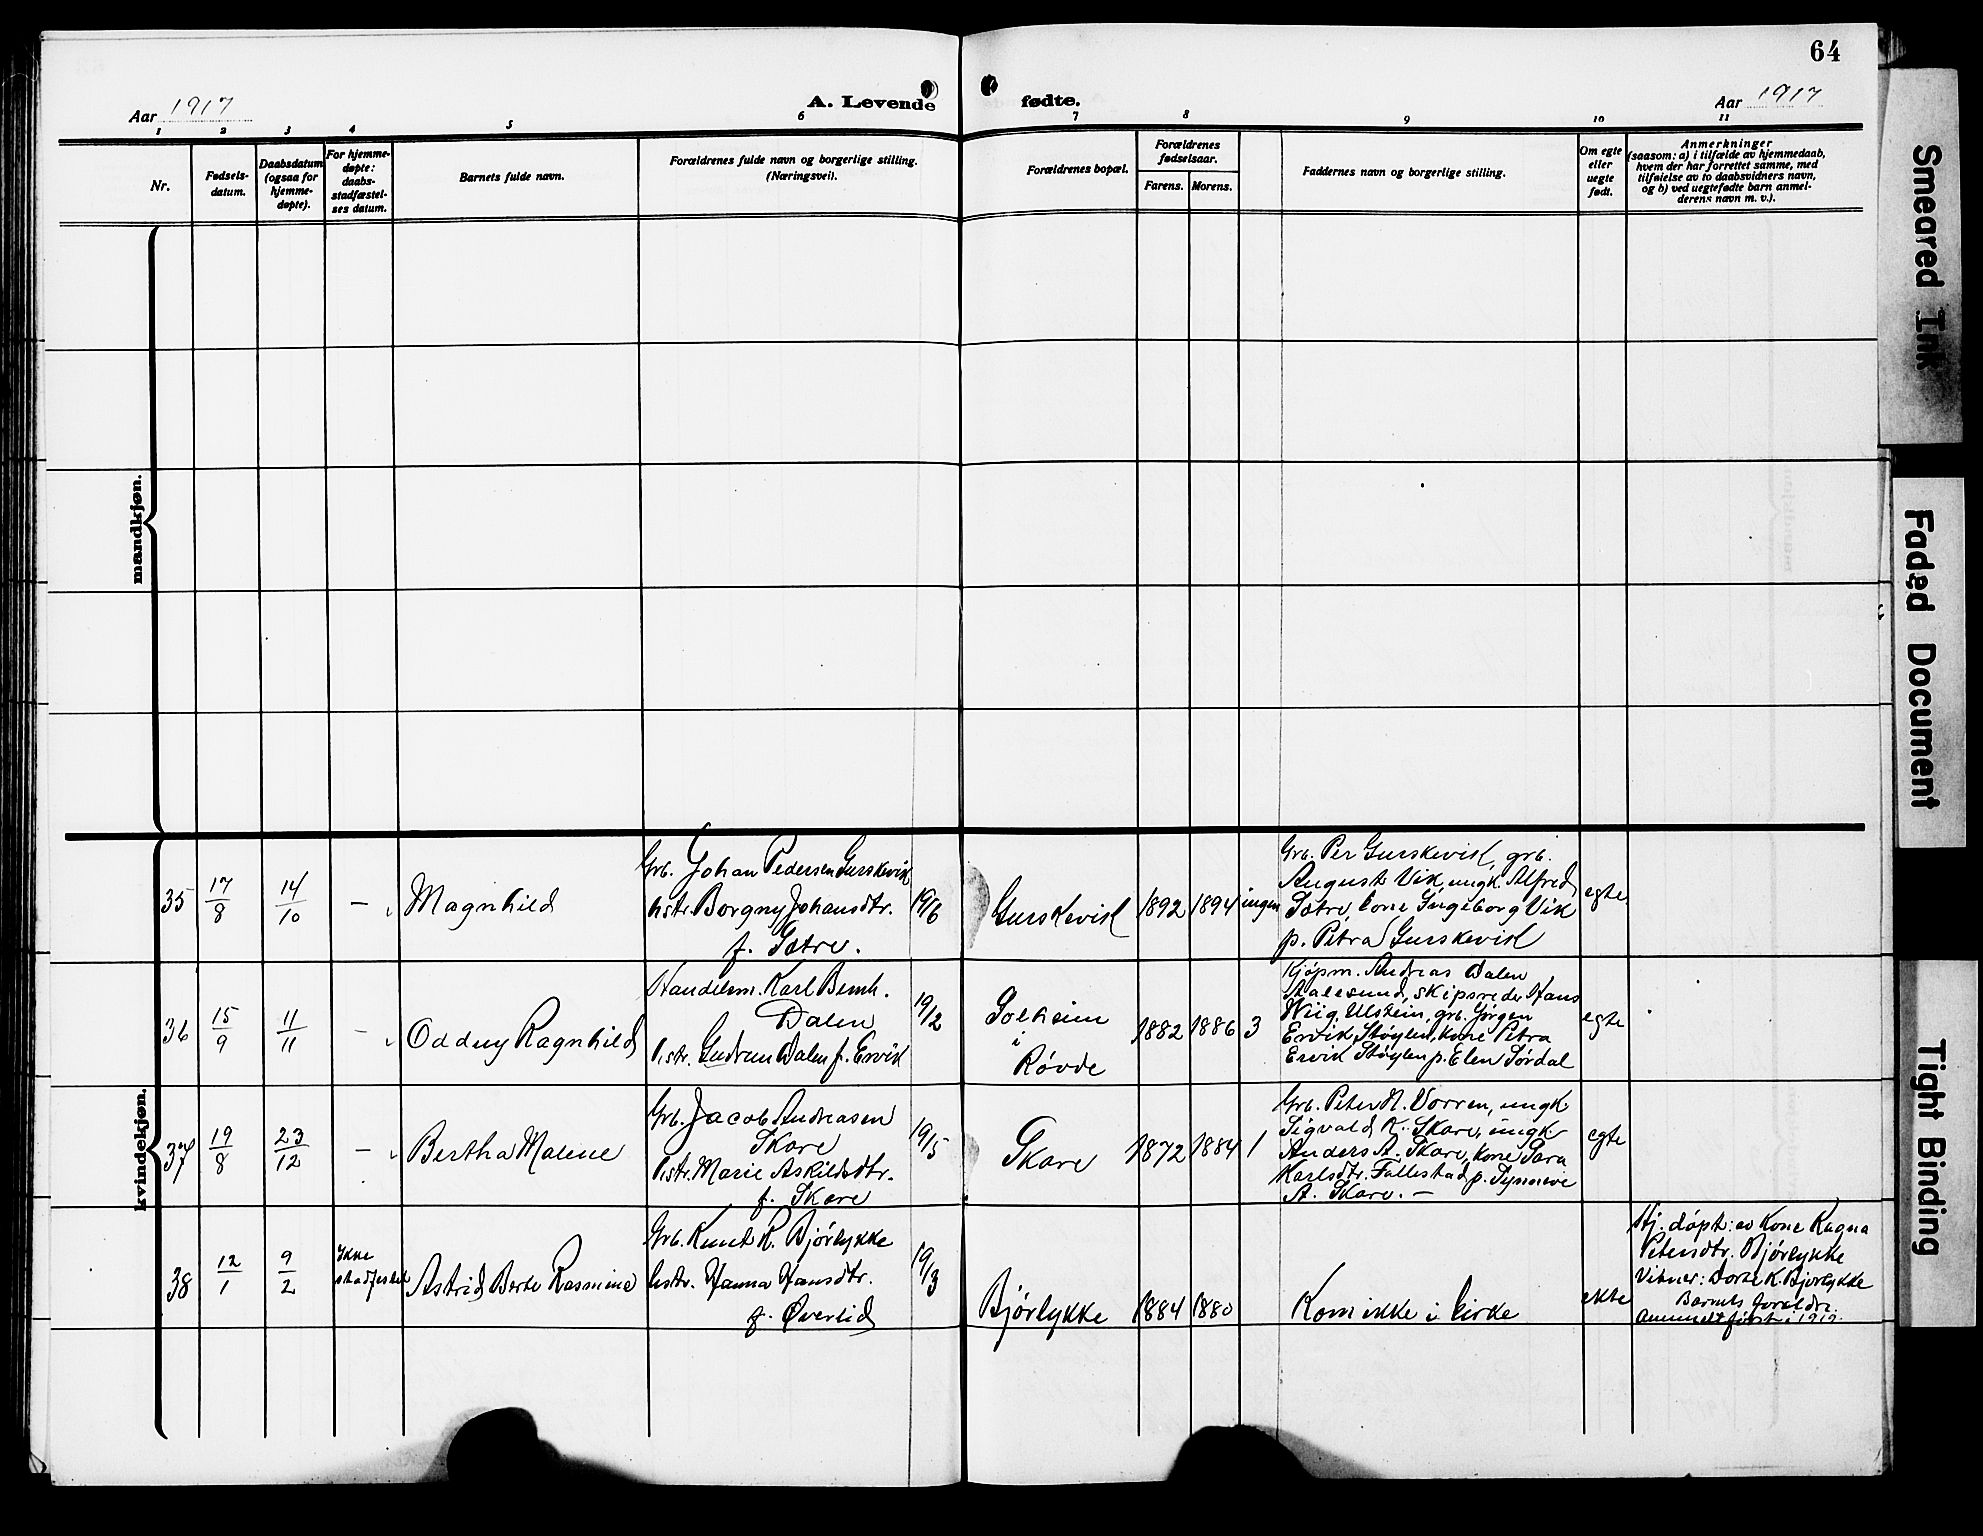 64
Aar 1917
A. Levende fødte.
Aar 1917
1 2 3 4 5 6 7 8 9 10 11
Nr.
Fødsels-
datum.
Daabsdatum
(ogsaa for
hjemme-
døpte).
For hjemme-
døpte:
daabs-
stadfæstel-
ses datum.
Barnets fulde navn.
Forældrenes fulde navn og borgerlige stilling.
(Næringsvei).
Forældrenes bopæl.
Forældrenes
fødselsaar.
Farens. Morens.
Faddernes navn og borgerlige stilling.
Om egte
eller
uegte
født.
Anmerkninger
(saasom: a) i tilfælde av hjemmedaab,
hvem der har forrettet samme, med
tilføielse av to daabsvidners navn,
og b) ved uegtefødte barn anmel-
derens navn m. v.).
mandkjøn.
kvindekjøn.
35
17/8
14/10
–
Magnhild
Grb. Johan Pedersen Gurskevik
hstr. Borgny Johansdtr.
f. Sætre.
19/6
Gurskevik
1892
1894
ingen
Grb. Per Gurskevik, grb.
August Vik, ungk. Alfred
Sætre, kone Ingeborg Vik
p. Petra Gurskevik
egte
36
15/9
11/11
–
Oddny Ragnhild
Handelsm. Karl Bernh.
Dalen
hstr. Gudrun Dalen f. Ervik
19/2
Solheim
i
Røvde
1882
1886
3
Kjøpm. Andreas Dalen
Aalesund, skipsreder Hans
Wiig, Ulstein, grb. Jørgen
Ervik Støylen, kone Petra
Ervik Støylen p. Elen Sørdal
egte
37
19/8
23/12
–
Bertha Malene
Grb. Jacob Andreasen
Skare
hstr. Marie Askildsdtr.
f. Skare
19/5
Skare
1872
1884
1
Grb. Peter N. Vorren, ungk.
Sigvald K. Skare, ungk.
Anders A. Skare, kone Sara
Karlsdtr. Fallestad p. Synneve
A. Skare. –
egte
38
12/1
9/2
Ikke
stadfestet
Astrid Berte Rasmine
Grb. Knut R. Bjørlykke
hstr. Hanna Hansdtr.
f. Øverlid
19/3
Bjørlykke
1884
1880
Kom ikke i kirke
ekte
Hj. døpt: av Kone Ragna
Petersdtr. Bjørlykke
Vitner: Dorte K. Bjørlykke
Barnets foreldre.
Anmeldt først i 1919.
Smeared Ink
Faded Document
Tight Binding